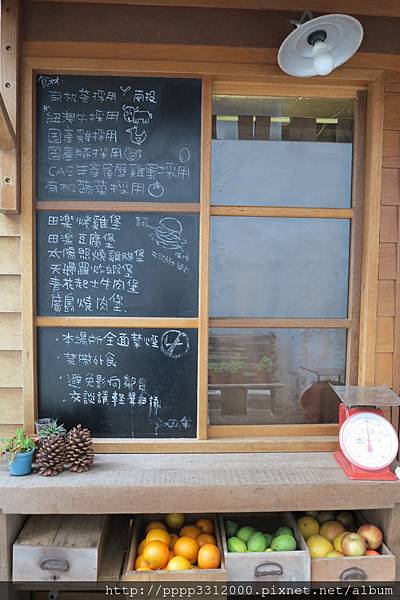 食材:
有机菜採用 南投
*紐澳牛採用
國產雞採用
國產豚採用
CAS生產履歷雞蛋採用
有机蔬菜採用
田樂燒雞堡
田樂豆腐堡
太陽照燒雞腿堡
天婦羅炸蝦堡
青花起士牛肉堡
廣島燒肉堡
·本場所全面禁煙
·禁帶外食
·避免影响鄰居
·交談請輕聲細語
http://pppp3312000.pixnet.net/blog